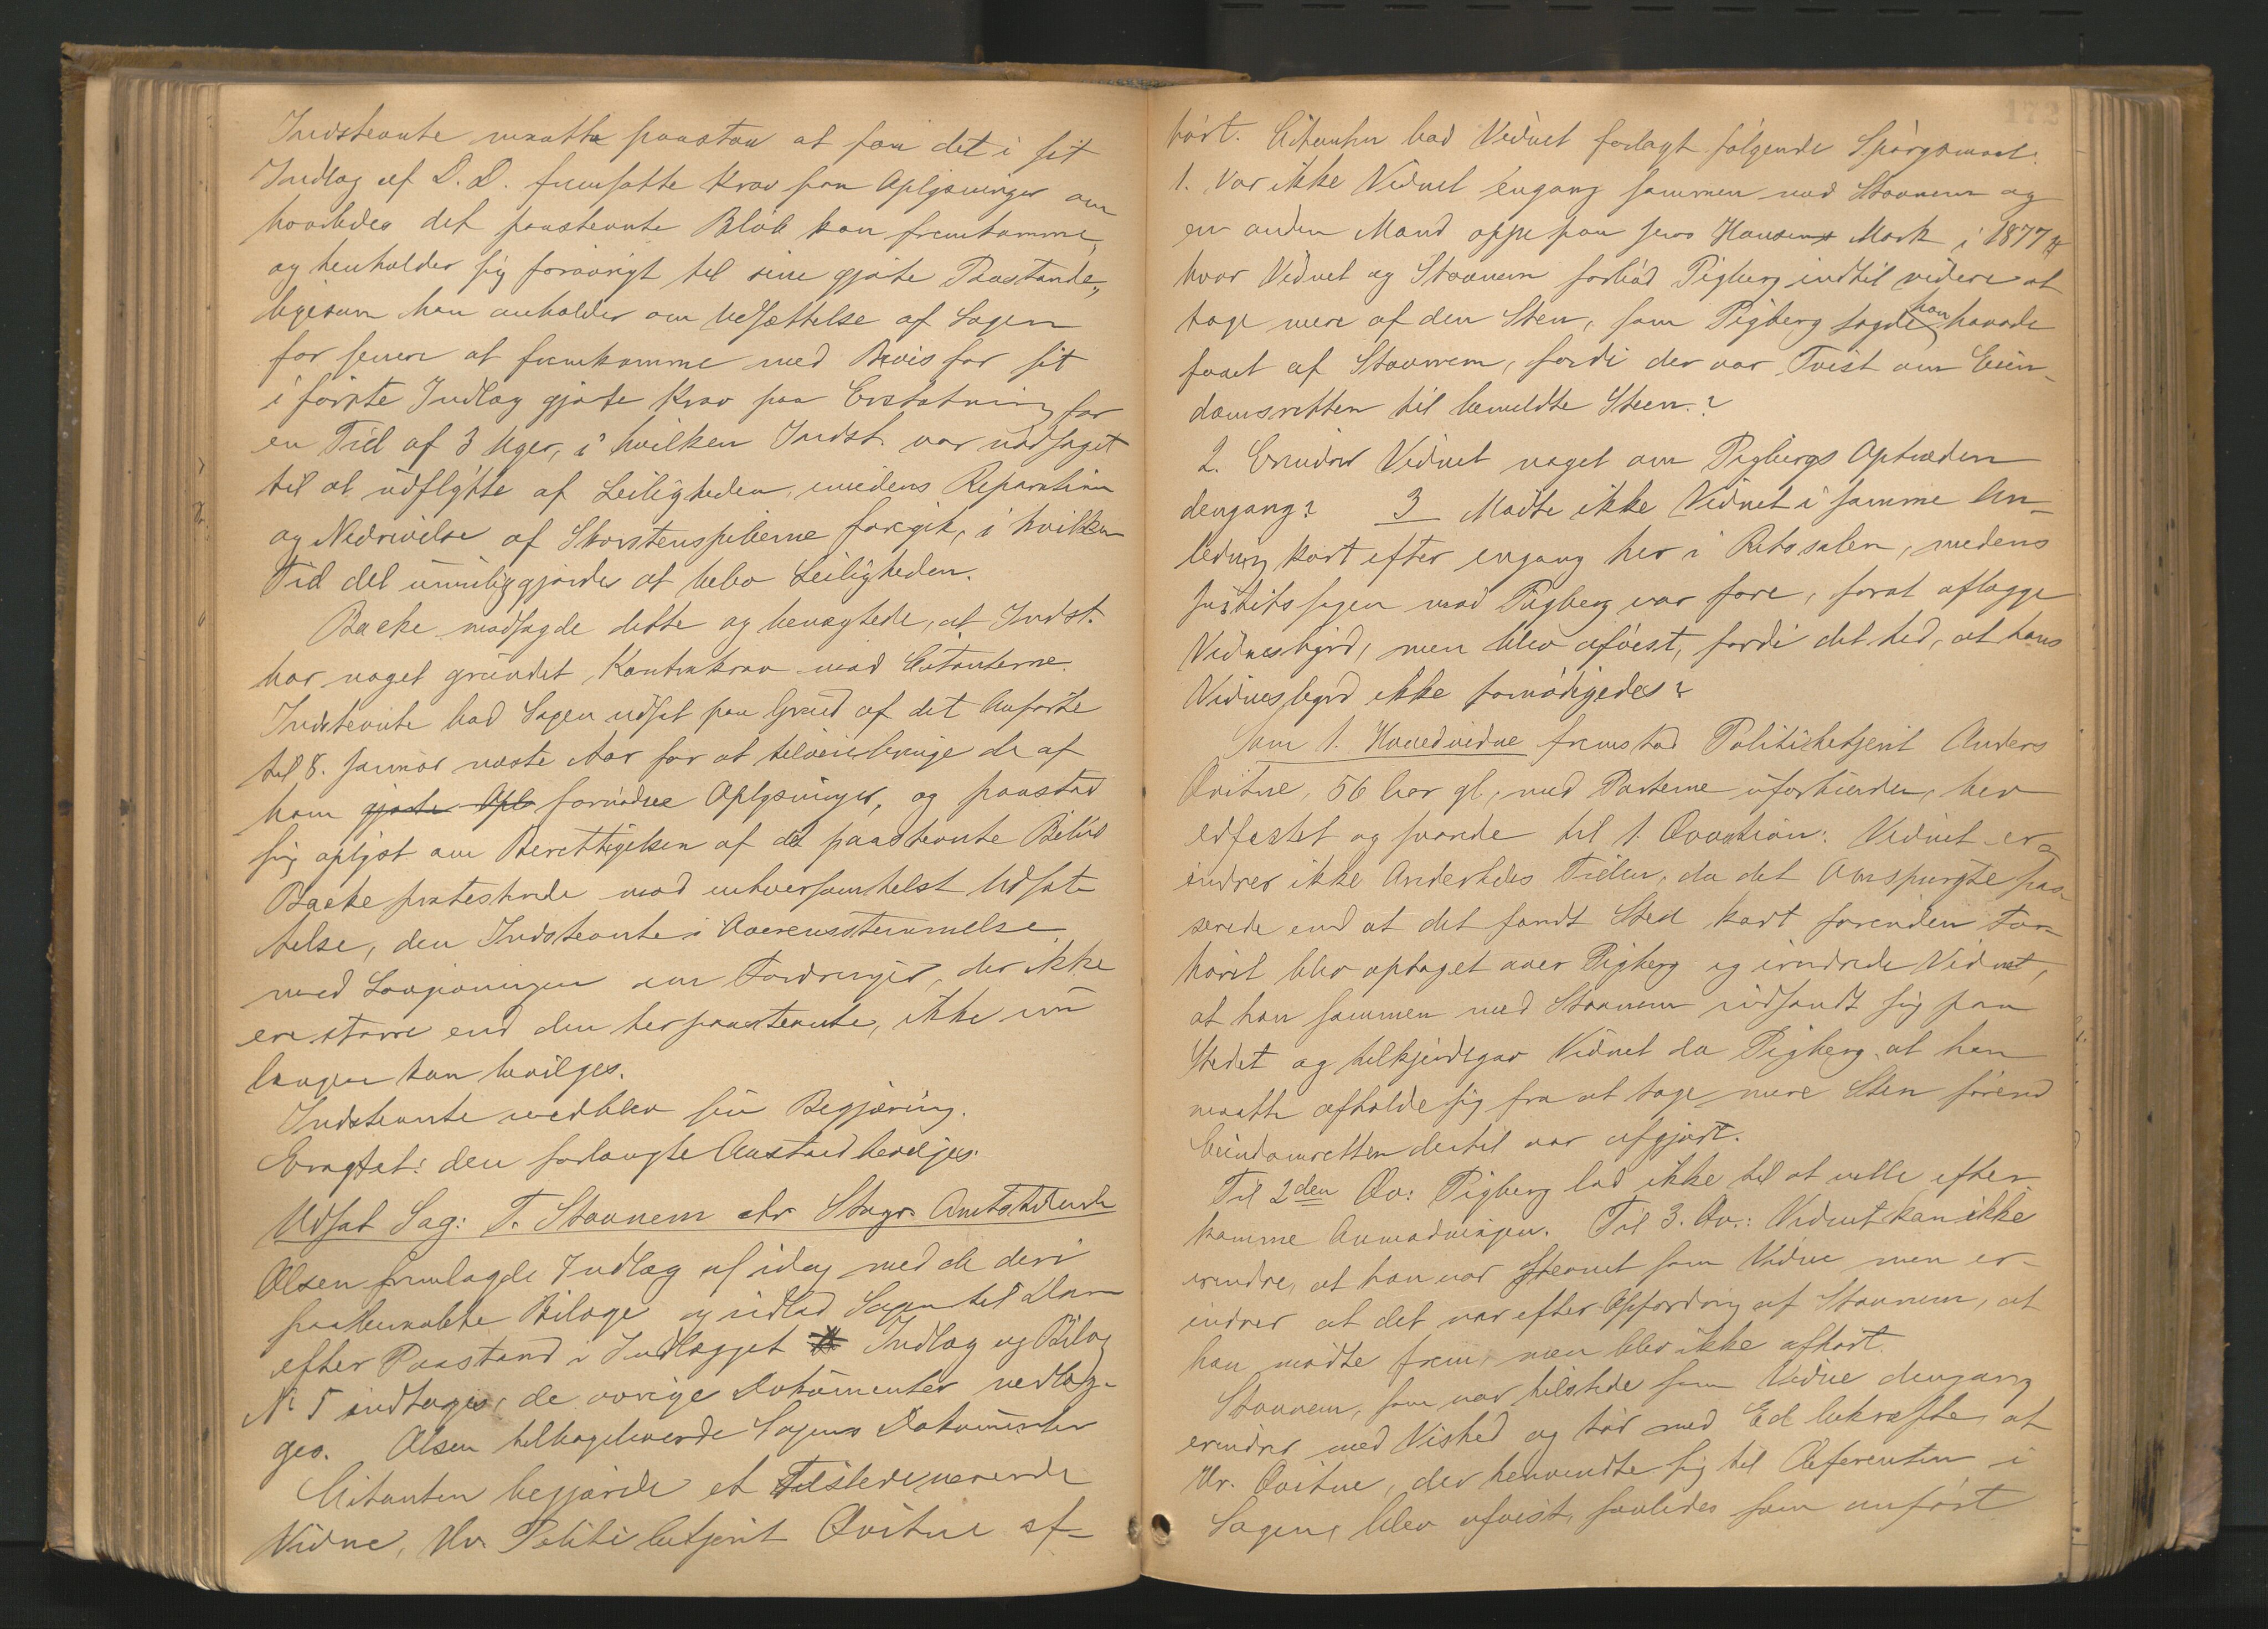 Indstevnte maatte paastaa at faa det i sit
Indlæg af D.D. fremsatte Krav paa Oplysninger om
hvorledes det paastevnte Beløb kan fremkomme,
og henholder sig forøvrigt til sine gjorte Paastande,
ligesom han anholder om Udsættelse af Sagen
for senere at fremkomme med Bevis for sit
i første Indlæg gjorte Krav paa Erstatning for
en Tid af 3 Uger, i hvilken Indst. var nødsaget
til at udflytte af Leiligheden, imedens Reparation
og Nedrivelse af Skorstenspiberne foregik, i hvilken
Tid det umuliggjordes at bebo Leiligheden.
Backe modsagde dette og benægtede, at Indst.
har noget grundet Kontrakrav mod Citanterne.
Indstevnte bad Sagen udsat paa Grund af det Anførte
til 8. Januar næste Aar for at tilveiebringe de af
ham gjorte Opl fornødne Oplysninger, og paastod
sig oplyst om Berettigelsen af det paastevnte Beløb
Backe protesterede mod enhversomhelst Udsæt-
telse, den Indstevnte i Overensstemmelse
med Lovgivningen om Fordringer, der ikke
ere større end den her paastevnte, ikke nu
længere kan bevilges.
Indstevnte vedblev sin Begjæring.
Eragtet: den forlangte Anstand bevilges.
Udsat Sag: T. Stavnem ctr Stavgr. Amtstidende
Olsen fremlagde Indlæg af idag med de deri
paaberaabte Bilage og indlod Sagen til Dom
efter Paastand i Indlægget Indlæg og Bilag
No 5 indtages, de øvrige Dokumenter vedlæg-
ges. Olsen tilbageleverede Sagens Dokumenter
Citanten begjærede et Tilstedeværende
Vidne, Hr. Politibetjent Qvitne af-
172
hørt. Citanten bad Vidnet forlagt følgende Spørgsmaal:
1. Var ikke Vidnet engang sammen med Stavnem og
en anden Mand oppe paa Jens Hansens Mark i 1877
hvor Vidnet og Stavnem forbød Pigberg indtil videre at
tage mere af den Sten, som Pigberg sagde han havde
faaet af Stavnem, fordi der var Tvist om Eien-
domsretten til bemeldte Steen?
2. Erindrer Vidnet noget om Pigbergs Optræden
dengang? 3 Mødte ikke Vidnet i samme An-
ledning kort efter engang her i Retssalen, medens
Justitssagen mod Pigberg var fore, forat aflægge
Vidnesbyrd, men blev afvist, fordi det hed, at hans
Vidnesbyrd ikke fornødigedes?
Som 1. Hovedvidne fremstod Politibetjent Anders
Qvitne, 56 Aar gl., med Parterne uforbunden, blev
edfæstet og svarede til 1. Qvæstion: Vidnet er-
indrer ikke Anderledes Tiden, da det Omspurgte pas-
serede end at det fandt Sted kort forinden For-
høret blev optaget over Pigberg og erindrede Vidnet,
at han sammen med Stavnem indfandt sig paa
Stedet og tilkjendegav Vidnet da Pigberg at han
maatte afholde sig fra at tage mere Sten førend
Eiendomsretten dertil var afgjort.
Til 2den Qv: Pigberg lod ikke til at ville efter-
komme Anmodningen. Til 3. Qv.: Vidnet kan ikke
erindre, at han var stevnet som Vidne men er-
indrer at det var efter Opfordring af Stavnem, at
han mødte frem, men blev ikke afhørt.
Stavnem, som var tilstede som Vidne dengang
erindrer med Vished og tør med Ed bekræfte, at
Hr. Qvitne, der henvendte sig til Referenten i
Sagen, blev afvist, saaledes som anført